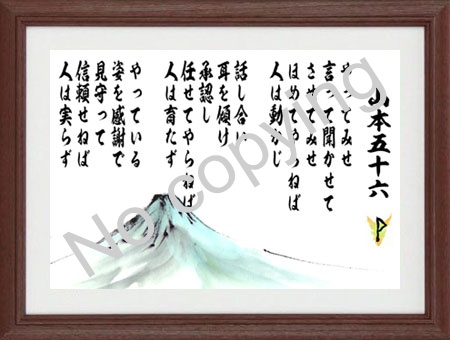 山本五十六
やってみせ
言って聞かせて
させてみせ
ほめてやらねば
人は動かじ
話し合い
耳を傾け
承認し
任せてやらねば
人は育たず
やっている
姿を感謝で
見守って
信頼せねば
人は実らず
No copying